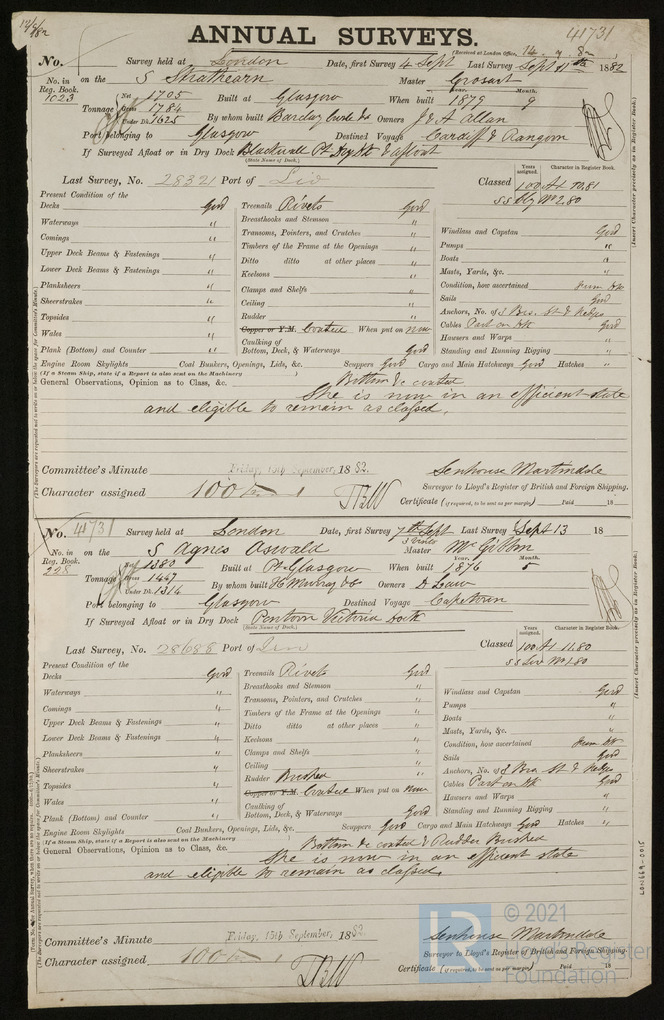 ANNUAL SURVEYS.
41731
(Received at London Office, 14 . 9 . 82
No. Survey held at London Date, first Survey 4 Sept Last Survey Sept 11th 1882
No. in Reg. Book. 1023 on the S Strathearn Master Crosart
Tonnage Net 1705 Gross 1784 Under Dk. 1625 Built at Glasgow When built 1879 Year. Month. 9
By whom built Barclay Curle & Co Owners J & A Allan
Port belonging to Glasgow Destined Voyage Cardiff & Rangoon
If Surveyed Afloat or in Dry Dock Blackwall Pt & afloat
(State Name of Dock.)
Last Survey, No. 28321 Port of Liv Classed Years assigned. Character in Register Book.
100 A1 10.81
Present Condition of the
Decks Good Treenails Rivets Good
Waterways " Breasthooks and Stemson "
Comings " Transoms, Pointers, and Crutches " Windlass and Capstan Good
Upper Deck Beams & Fastenings " Timbers of the Frame at the Openings " Pumps "
Lower Deck Beams & Fastenings " Ditto ditto at other places " Boats "
Planksheers " Keelsons " Masts, Yards, &c. "
Sheerstrakes " Clamps and Shelfs " Condition, how ascertained from dk
Topsides " Ceiling " Sails Good
Wales " Rudder " Anchors, No. of 3 Brs. St & Kedge
Copper or Y.M. Coated When put on now Cables Part on dk Good
Plank (Bottom) and Counter " Caulking of Bottom, Deck, & Waterways Good Hawsers and Warps "
Standing and Running Rigging "
Engine Room Skylights Coal Bunkers, Openings, Lids, &c. Scuppers Good Cargo and Main Hatchways Good Hatches "
(If a Steam Ship, state if a Report is also sent on the Machinery )
General Observations, Opinion as to Class, &c. Bottom &c coated
She is now in an efficient state
and eligible to remain as classed.
Committee's Minute Friday, 15th September, 1882. Senhouse Martindale
Surveyor to Lloyd's Register of British and Foreign Shipping.
Character assigned 100 A 1
Certificate (if required, to be sent as per margin) Paid 18
No. 41731 Survey held at London Date, first Survey 7th Sept Last Survey Sept 13 18
3 Visits
No. in Reg. Book. 228 on the S Agnes Oswald Master McGibbon
Tonnage Net 1380 Gross 1447 Under Dk. 1314 Built at Pt Glasgow When built 1876 Year. Month. 5
By whom built H Murray & Co Owners D Law
Port belonging to Glasgow Destined Voyage Capetown
If Surveyed Afloat or in Dry Dock Pontoon Victoria Dock
(State Name of Dock.)
Last Survey, No. 28688 Port of Classed Years assigned. Character in Register Book.
100 A1 11.80
SS Liv No 1.80
Present Condition of the
Decks Good Treenails Rivets Good
Waterways " Breasthooks and Stemson " Windlass and Capstan Good
Comings " Transoms, Pointers, and Crutches " Pumps "
Upper Deck Beams & Fastenings " Timbers of the Frame at the Openings " Boats "
Lower Deck Beams & Fastenings " Ditto ditto at other places " Masts, Yards, &c. "
Planksheers " Keelsons " Condition, how ascertained from dk
Sheerstrakes " Clamps and Shelfs " Sails Good
Topsides " Ceiling " Anchors, No. of 3 Bra St & Kedge
Rudder Bushed Cables Part on dk Good
Wales " Copper or Y.M. Coated When put on now Hawsers and Warps "
Plank (Bottom) and Counter " Caulking of Bottom, Deck, & Waterways Good Standing and Running Rigging "
Engine Room Skylights Coal Bunkers, Openings, Lids, &c. Scuppers Good Cargo and Main Hatchways Good Hatches "
(If a Steam Ship, state if a Report is also sent on the Machinery )
General Observations, Opinion as to Class, &c. Bottom &c coated & Rudder Bushed
She is now in an efficient state
and eligible to remain as classed.
Committee's Minute Friday, 15th September, 1882. Senhouse Martindale
Surveyor to Lloyd's Register of British and Foreign Shipping.
Character assigned 100 A
Certificate (if required, to be sent as per margin) Paid 18
(Insert Character precisely as in Register Book.)
(Insert Character precisely as in Register Book.)
(The Surveyors are requested not to write on or below the space for Committee's Minute.)
LON669-0015
LR © 2021
Lloyd's Register
Foundation